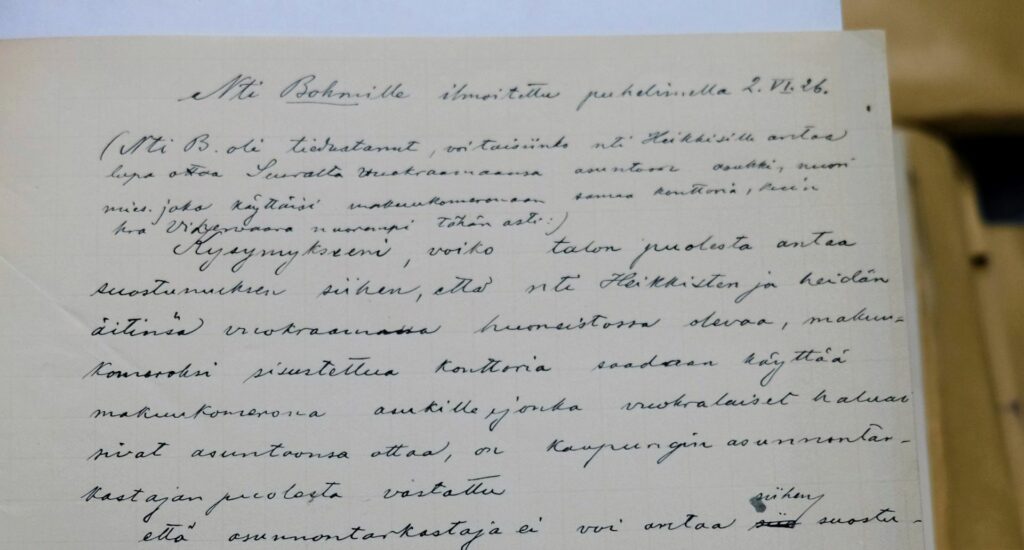 Nti Bohmille ilmoitettu puhelimella 2.VI.26.
(Nti B. oli tiedustanut, voitaisiinko nti Heikkisille antaa
lupa ottaa Seuralta vuokraamaansa asuntoon asukki, nuori
mies, joka käyttäisi makuukomeronaan samaa konttoria, kuin
hra nuorempi tähän asti:)
Kysymykseeni, voiko talon puolesta antaa
suostumuksen siihen, että nti Heikkisten ja heidän
äitinsä vuokraamassa huoneistossa olevaa, makuu-
komeroksi sisustettua konttoria saadaan käyttää
makuukomerona asukille, jonka vuokralaiset haluai
sivat asuntoonsa ottaa, on kaupungin asunnontar-
kastajan puolesta vastattu
siihen
että asunnontarkastaja ei voi antaa suostu-